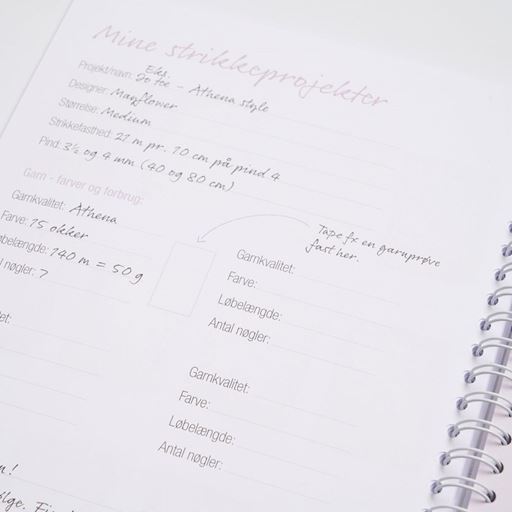 Mine strikkeprojekter
Eks.
Projekt/navn: To toe - Athena style
Designer: Mayflower
Størrelse: Medium
Strikkefasthed: 21 m pr. 10 cm på pind 4
Pind: 3½ og 4 mm (40 og 80 cm)
Garn - farver og forbrug:
Garnkvalitet: Athena
Farve: 15 okker
øbelængde: 140 m = 50 g
l nøgler: 7
Tape fx en garnprøve
fast her.
Garnkvalitet:
Farve:
Løbelængde:
Antal nøgler:
et:
Garnkvalitet:
Farve:
Løbelængde:
Antal nøgler:
n!